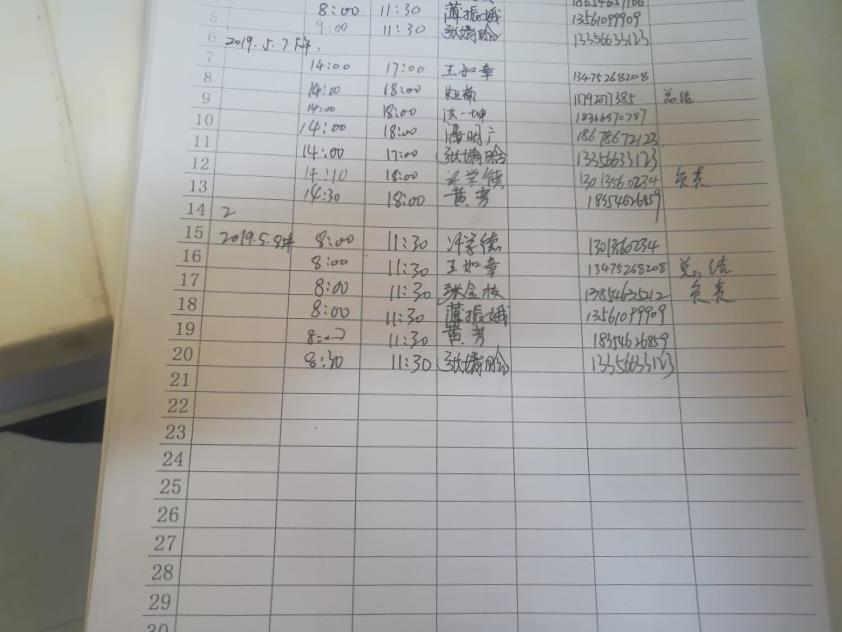 5 8:00 11:30 薄振娥 13561099909
6 9:00 11:30 张婧晗 13356633123
2019.5.7下午.
7 14:00 17:00 王如章 13475268208
8 14:00 18:00 总结
9 14:00 18:00 洪一坤
10 14:00 18:00 18678672123
11 14:00 17:00 张婧晗 13356633123
12 14:10 18:00 13013560234 负责
13 14:30 18:00 黄芳 18354626859
14 2
15 2019.5.8 8:00 11:30 1301360234
16 8:00 11:30 王如章 13475268208 总结
17 8:00 11:30 张金枝 13854635212 负责
18 8:00 11:30 薄振娥 13561099909
19 8:00 11:30 黄芳 18354626859
20 8:30 11:30 张婧晗 13356633123
21
22
23
24
25
26
27
28
29
30